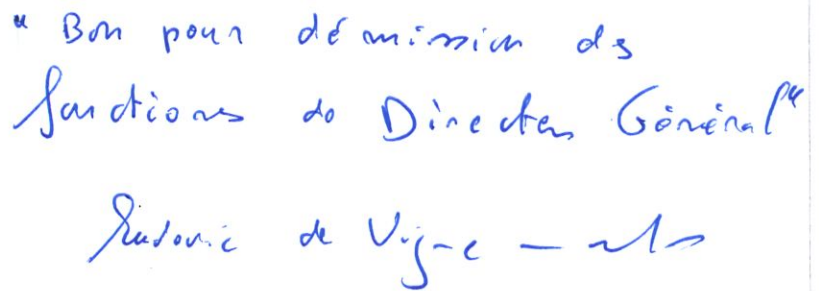 " Bon pour démission des
fonctions de Directeur Général"
Ludovic de Vigne